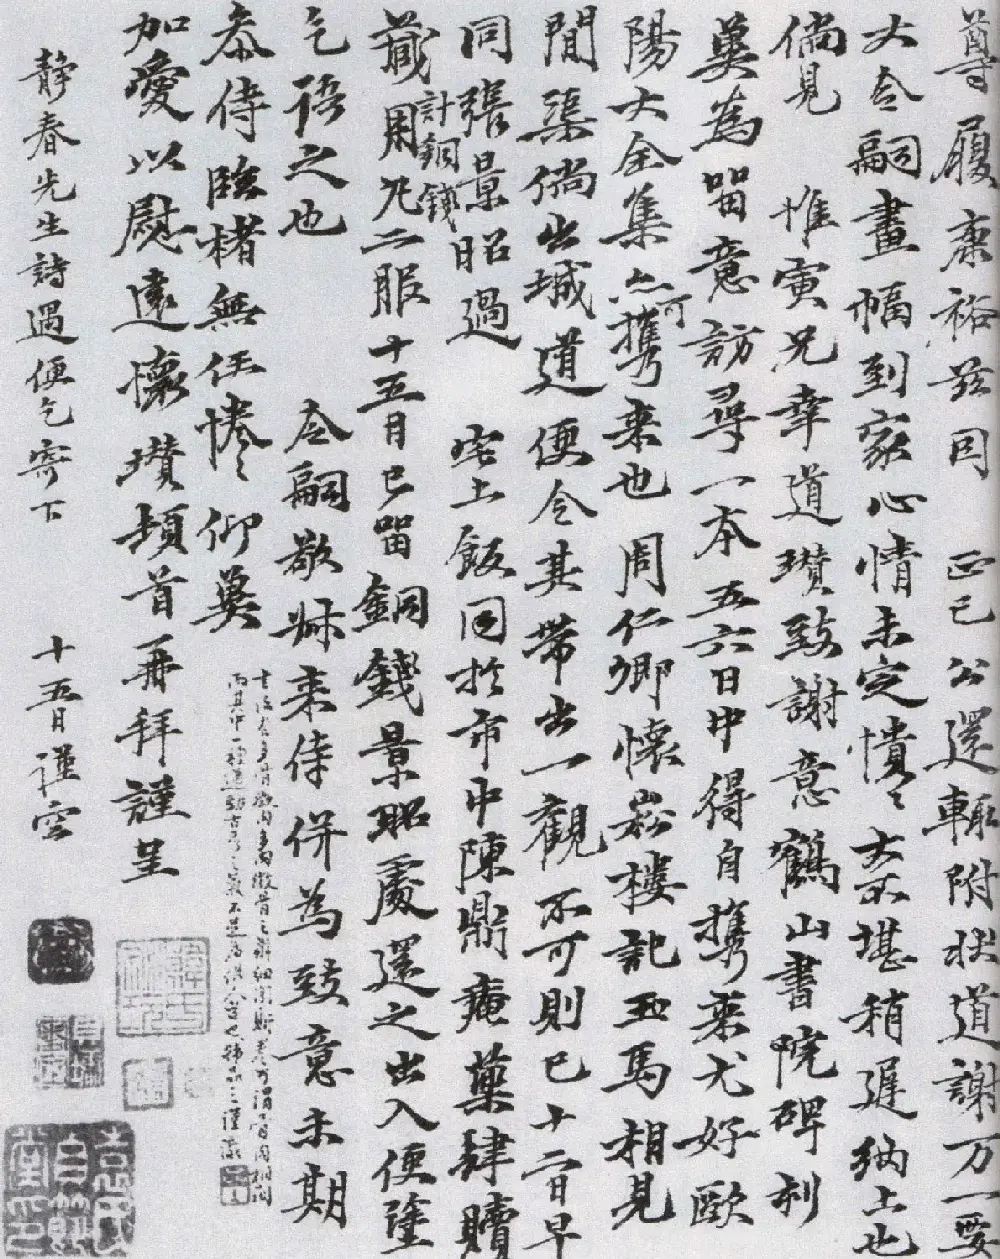 尊履康裕茲因　正己公還輙附狀道謝万一要
大令嗣畫幅到家心情未定憒〻
大不堪稍遲納上也
倘見　惟寅兄幸道瓚致謝意鶴山書院碑刻
冀為留意訪尋一本五六日中得自攜來尤好歐
陽大全集亦可攜来也周仁卿懷崧樓記五馬相見
閒渠倘出城道便令其帶出一觀不可則已十二日早
同張景昭過　宅上飯回於市中陳鼎庵藥肆贖
藏用丸二服十五月已留銅錢景昭處還之出入便望
計銅錢
乞語之也　令嗣敬妳来侍併為致意未期
恭侍臨楮無任惓〻仰冀
加愛以慰遠懷瓚頓首再拜謹呈
靜春先生詩過便乞寄下　十五日謹空